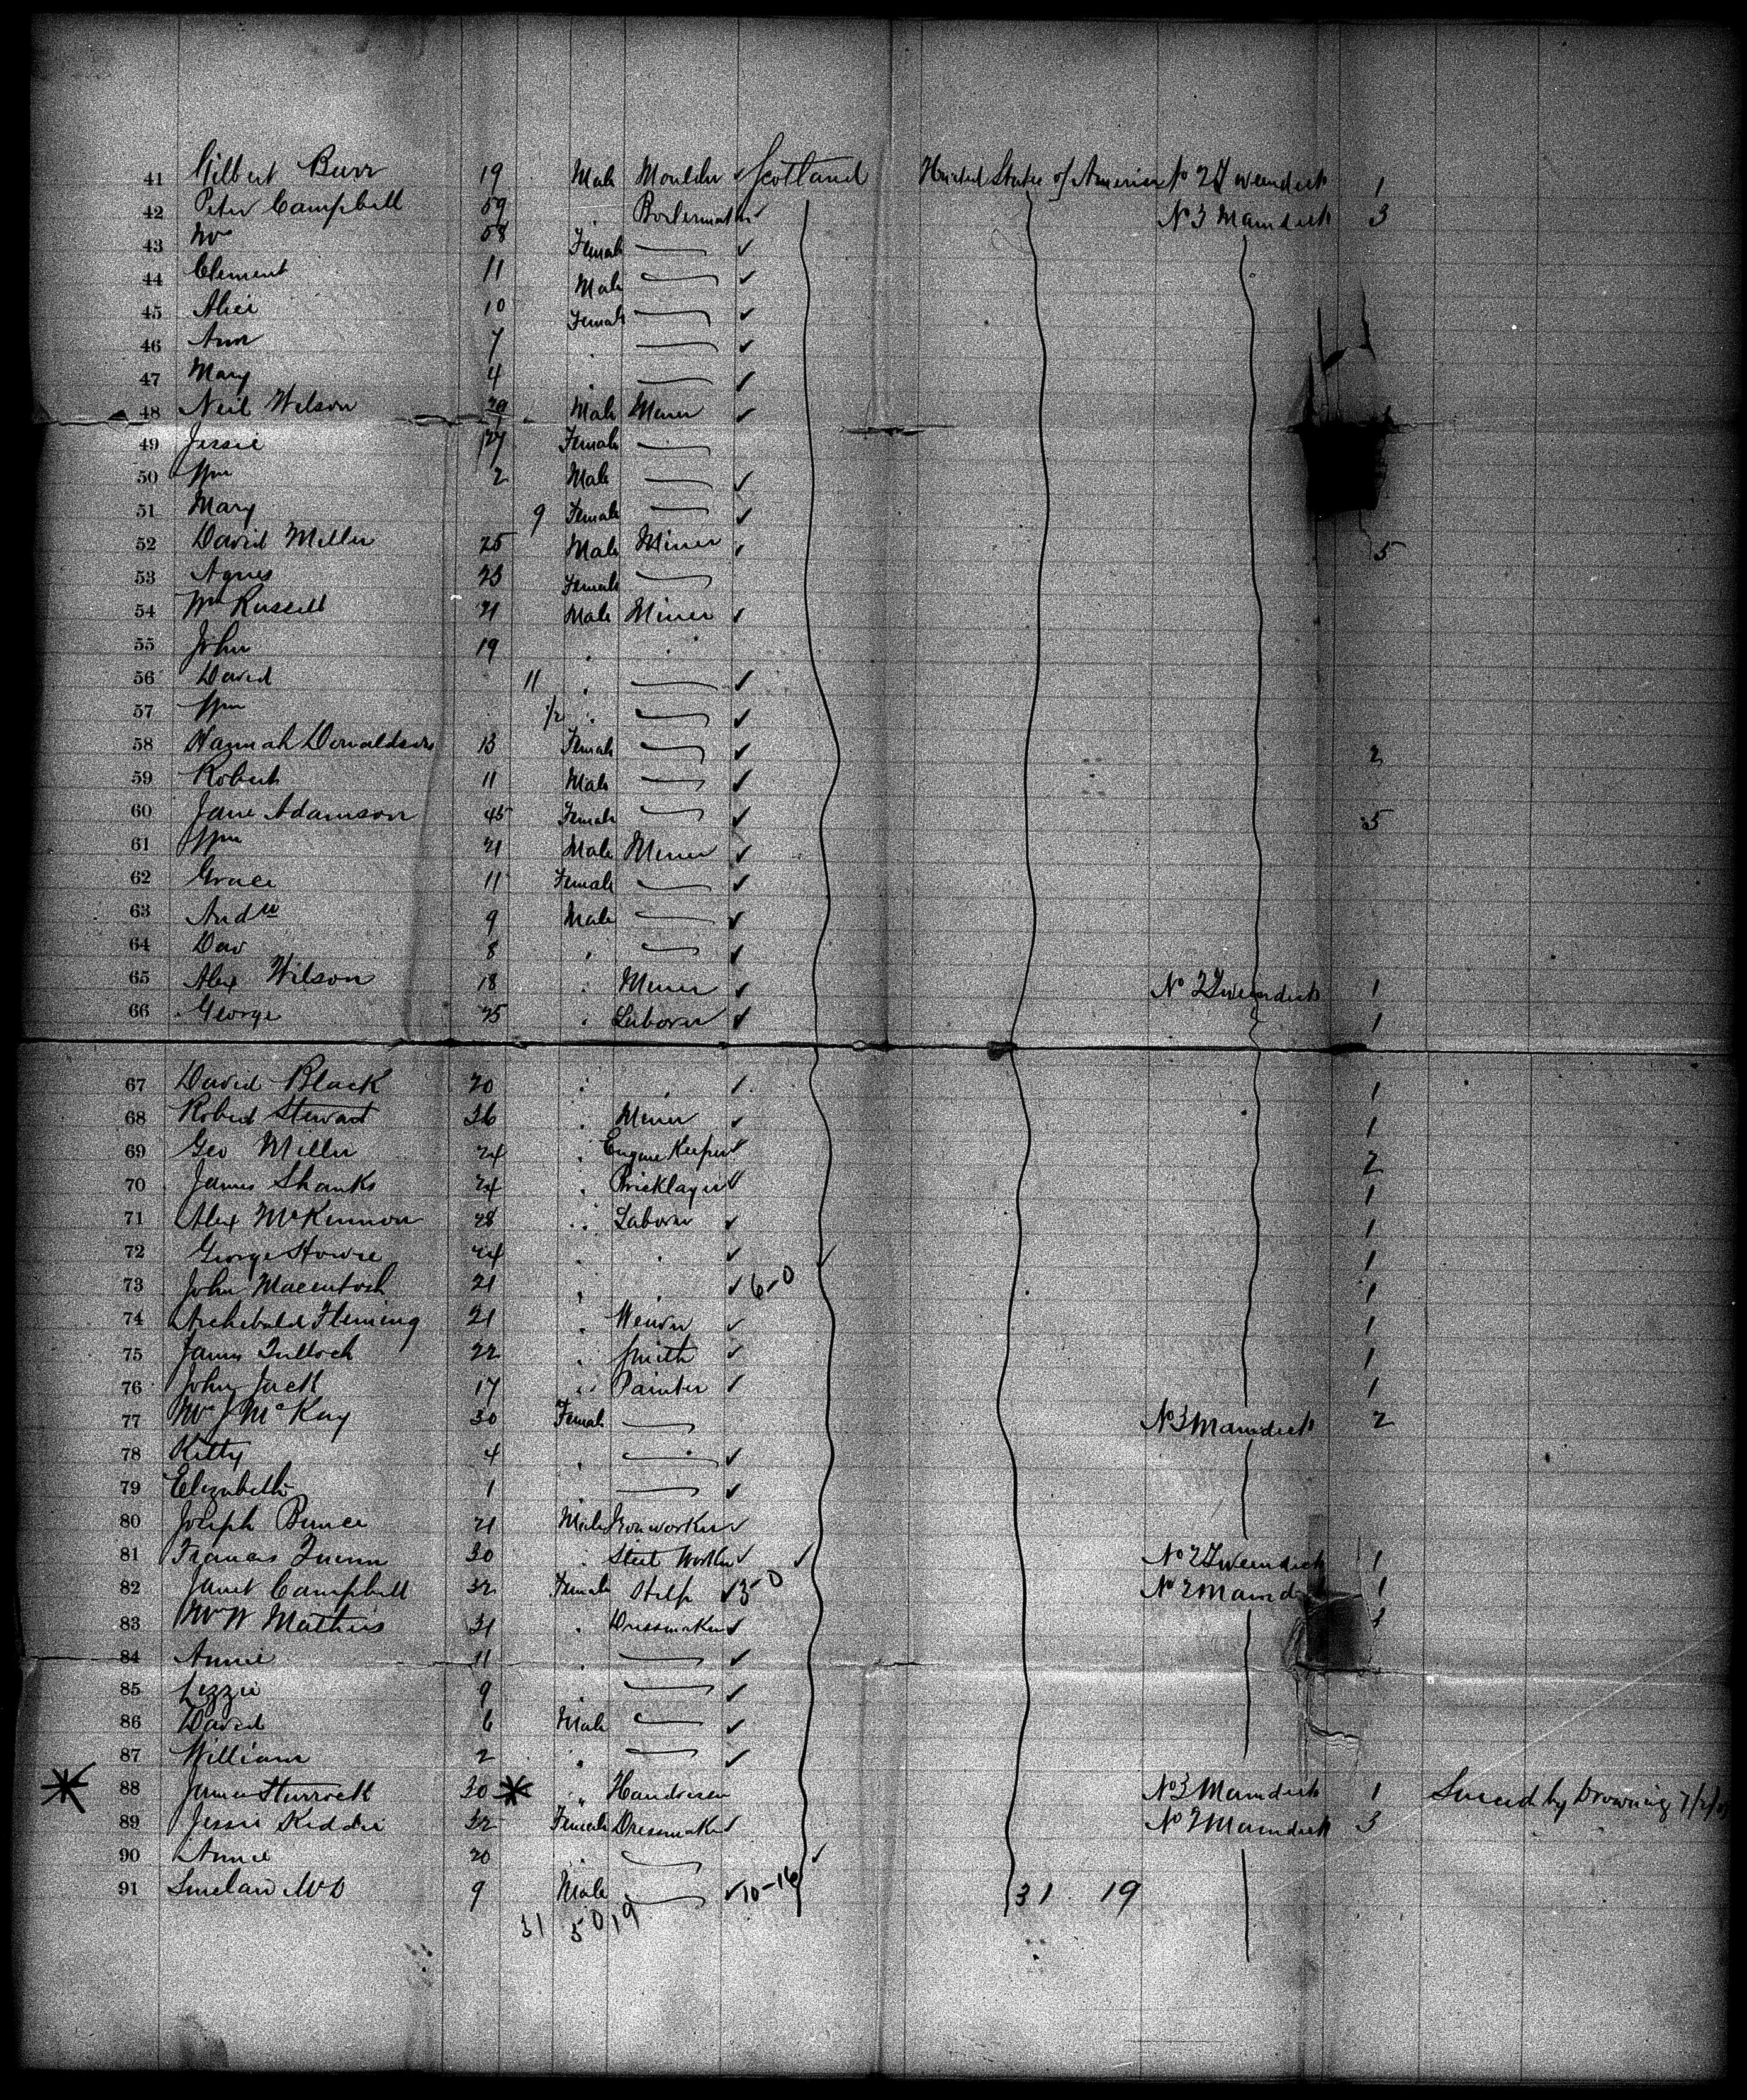 41 Gilbert Burr 19 Male Moulder Scotland United States of America No 2 Tweendeck 1
42 Peter Campbell 59 " Boilermaker No 3 Maindeck 3
43 Mrs 58 Female
44 Clement 11 Male
45 Alice 10 Female
46 Ann 7 "
47 Mary 4 "
48 Neil Wilson 29 Male Miner
49 Jessie 27 Female
50 Wm 2 Male
51 Mary 9 Female
52 David Miller 25 Male Miner 5
53 Agnes 23 Female
54 Wm Russell 21 Male Miner
55 John 19 " "
56 David 11 "
57 Wm 1/2 "
58 Hannah Donaldson 13 Female 2
59 Robert 11 Male
60 Jane Adamson 45 Female 5
61 Wm 21 Male Miner
62 Grace 11 Female
63 Andw 9 Male
64 Dav 8 "
65 Alex Wilson 18 " Miner No 2 Tweendeck 1
66 George 25 " Laborer 1
67 David Black 20 " " 1
68 Robert Stewart 36 " Miner 1
69 Geo Miller 24 " Engine Keeper 2
70 James Shanks 24 " Bricklayer 1
71 Alex McKinnon 28 " Laborer 1
72 George Howie 24 " " 1
73 John Macintosh 21 " " 6-0 1
74 Archibald Fleming 21 " 1
75 James Tulloch 22 " Smith 1
76 John Jack 17 " Painter 1
77 Mrs J McKay 30 Female No 3 Maindeck 2
78 Kitty 4 "
79 Elizabeth 1 "
80 Joseph Bunce 21 Male Ironworker
81 Francis Quinn 30 " Steel Worker No 2 Tweendeck 1
82 Janet Campbell 32 Female Help 5-0 No 2 Maind 1
83 Mrs W Mathies 31 " Dressmaker
84 Annie 11 "
85 Lizzie 9 "
86 David 6 Male
87 William 2 "
88 James Sturrock 30 " No 3 Maindeck 1 by Drowning
89 Jessie Kiddie 32 Female Dressmaker No 2 Maindeck 3
90 Annie 20 "
91 Sinclair 9 Male 10-16 31 19
31 50 19